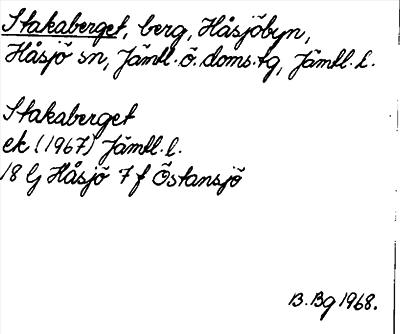 Stakaberget, berg, Håsjöbyn,
Håsjö sn, Jämtl. ö. doms.tg, Jämtl. l.
Stakaberget
ek (1967) Jämtl. l.
18 G Håsjö 7 f Östansjö
B. Bg 1968.